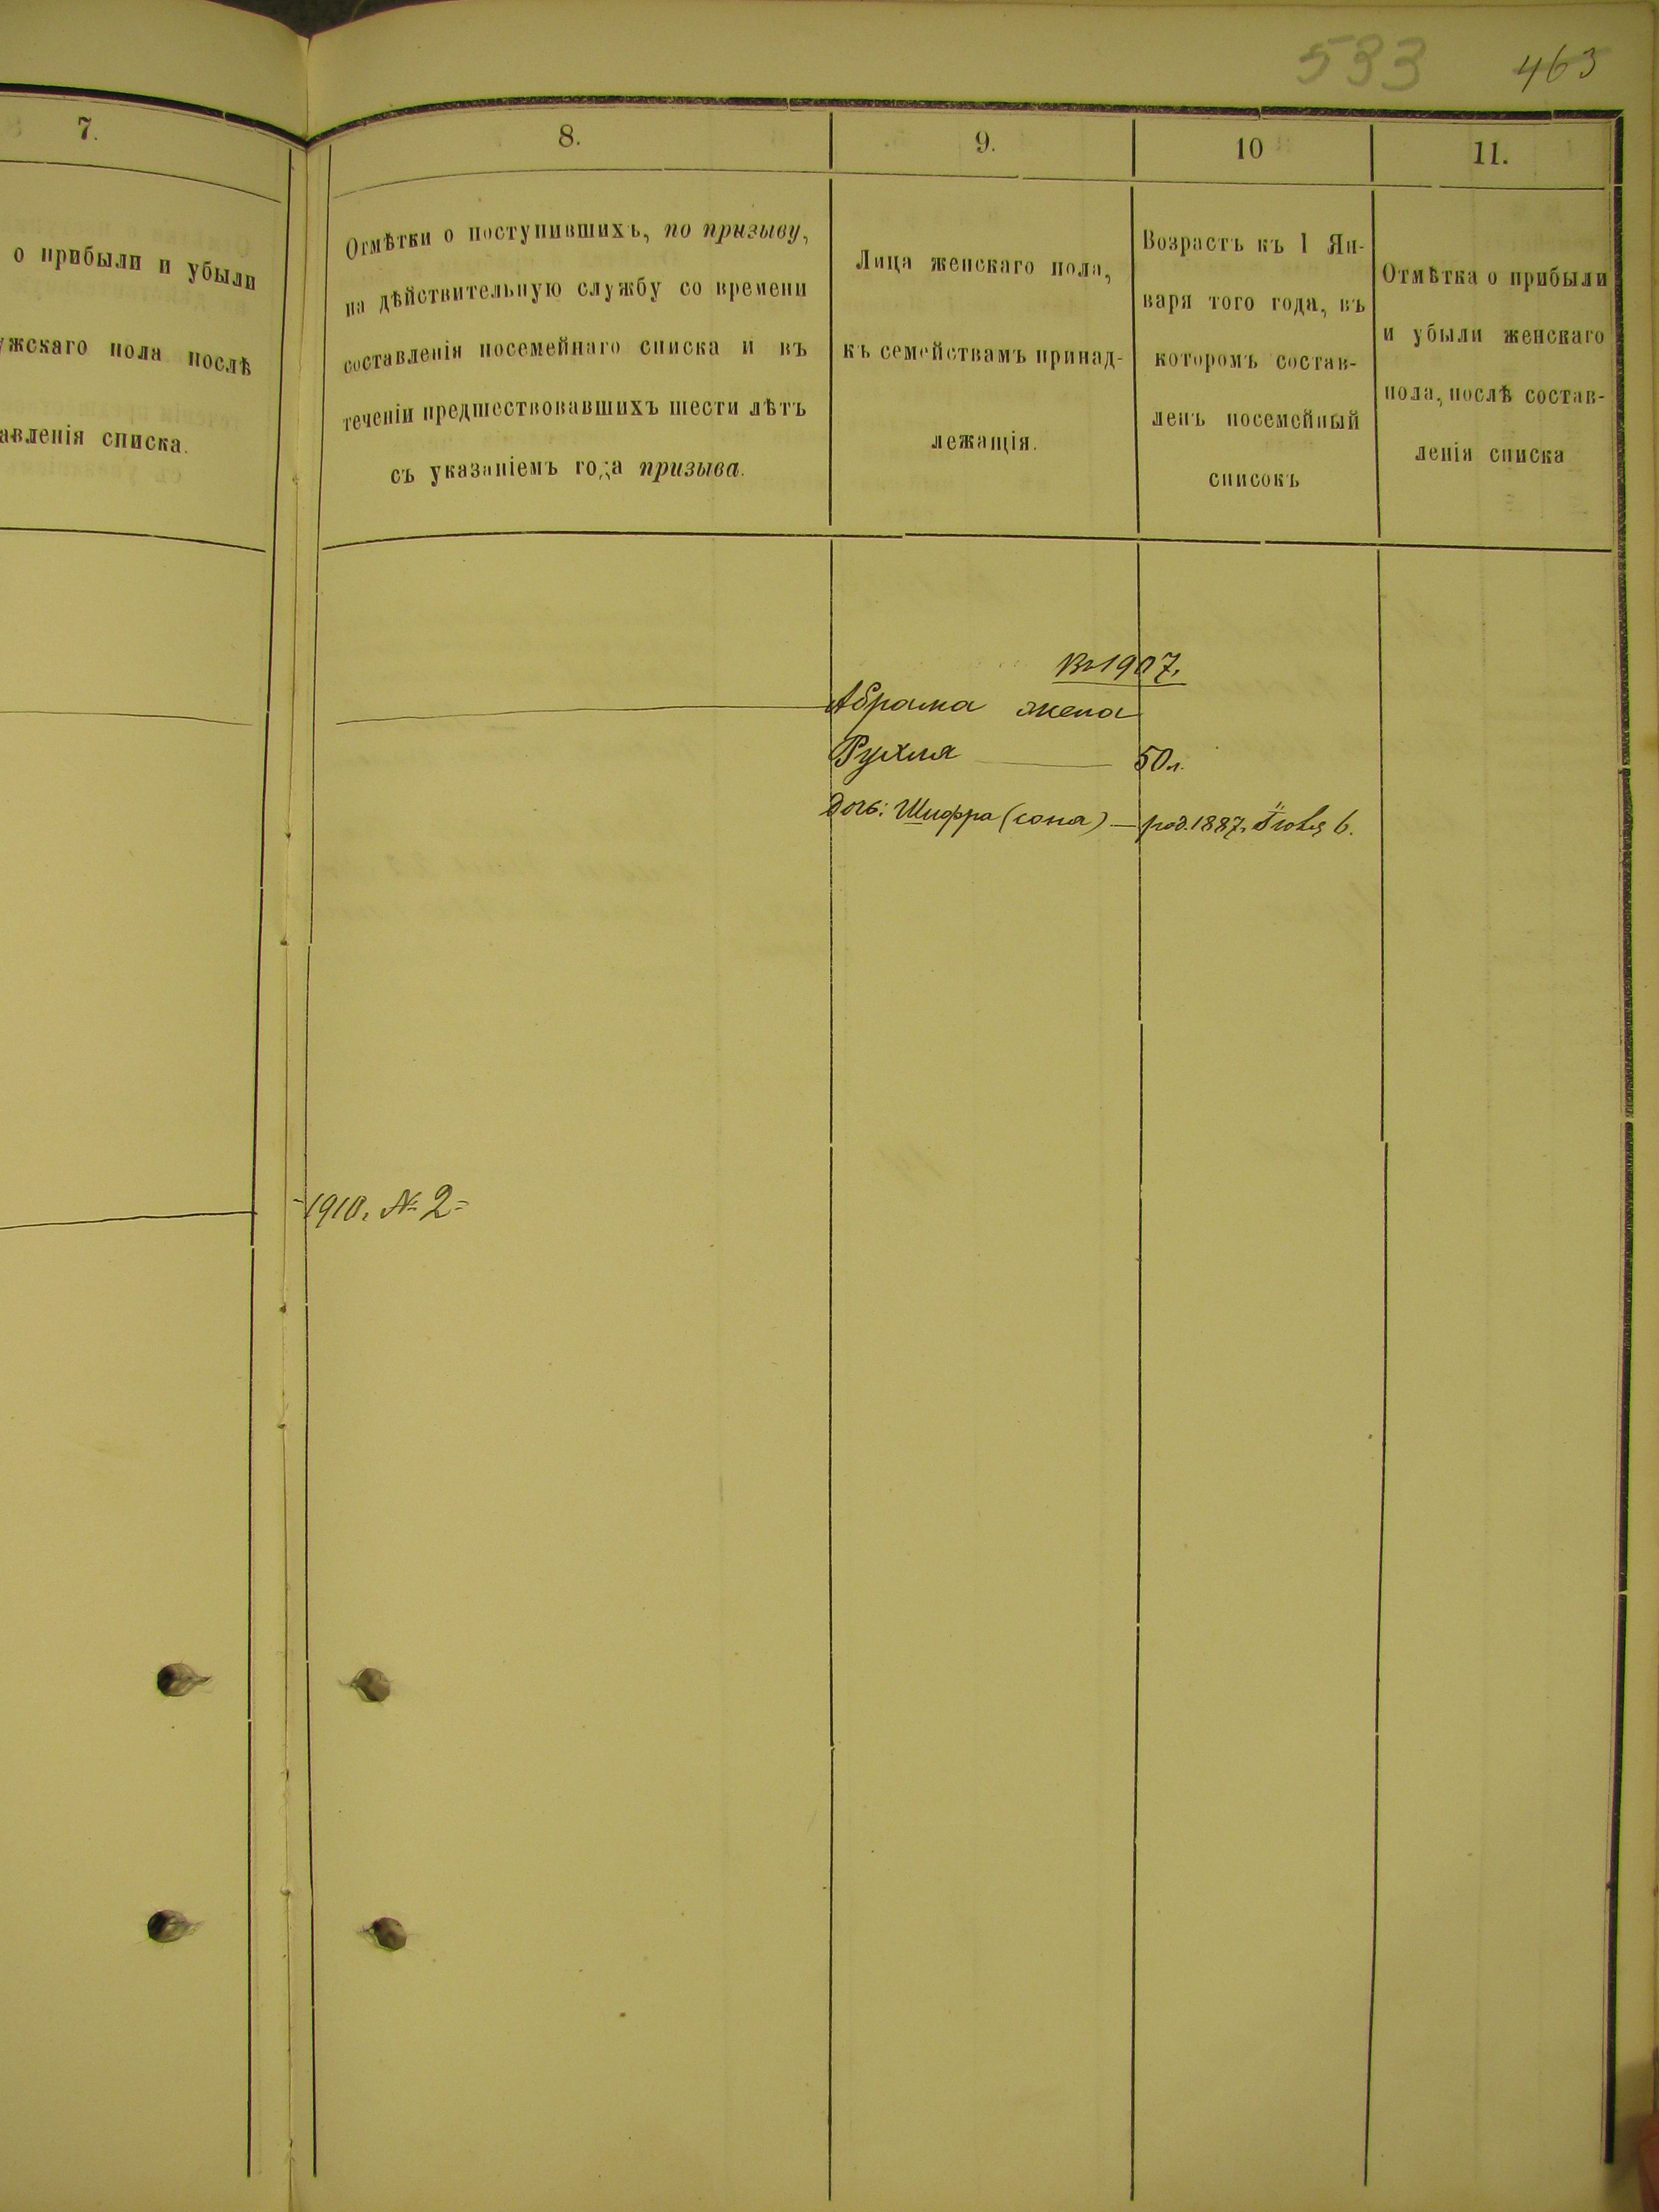 533 463
7.
о прибыли и убыли
ужскаго пола послѣ
авленія списка.
8.
Отмѣтки о поступившихъ, по призыву,
на дѣйствительную службу со времени
составленія посемейнаго списка и въ
теченіи предшествовавшихъ шести лѣтъ
съ указаніемъ года призыва.
9.
Лица женскаго пола,
къ семействамъ принад-
лежащія.
10
Возрастъ къ 1 Ян-
варя того года, въ
которомъ состав-
ленъ посемейный
списокъ
11.
Отмѣтка о прибыли
и убыли женскаго
пола, послѣ состав-
ленія списка
Въ 1907 г.
Абрама жена
Рухля 50 л.
дочь: Шифра (сона) — род. 1887 г. 6.
1910 г. № 2